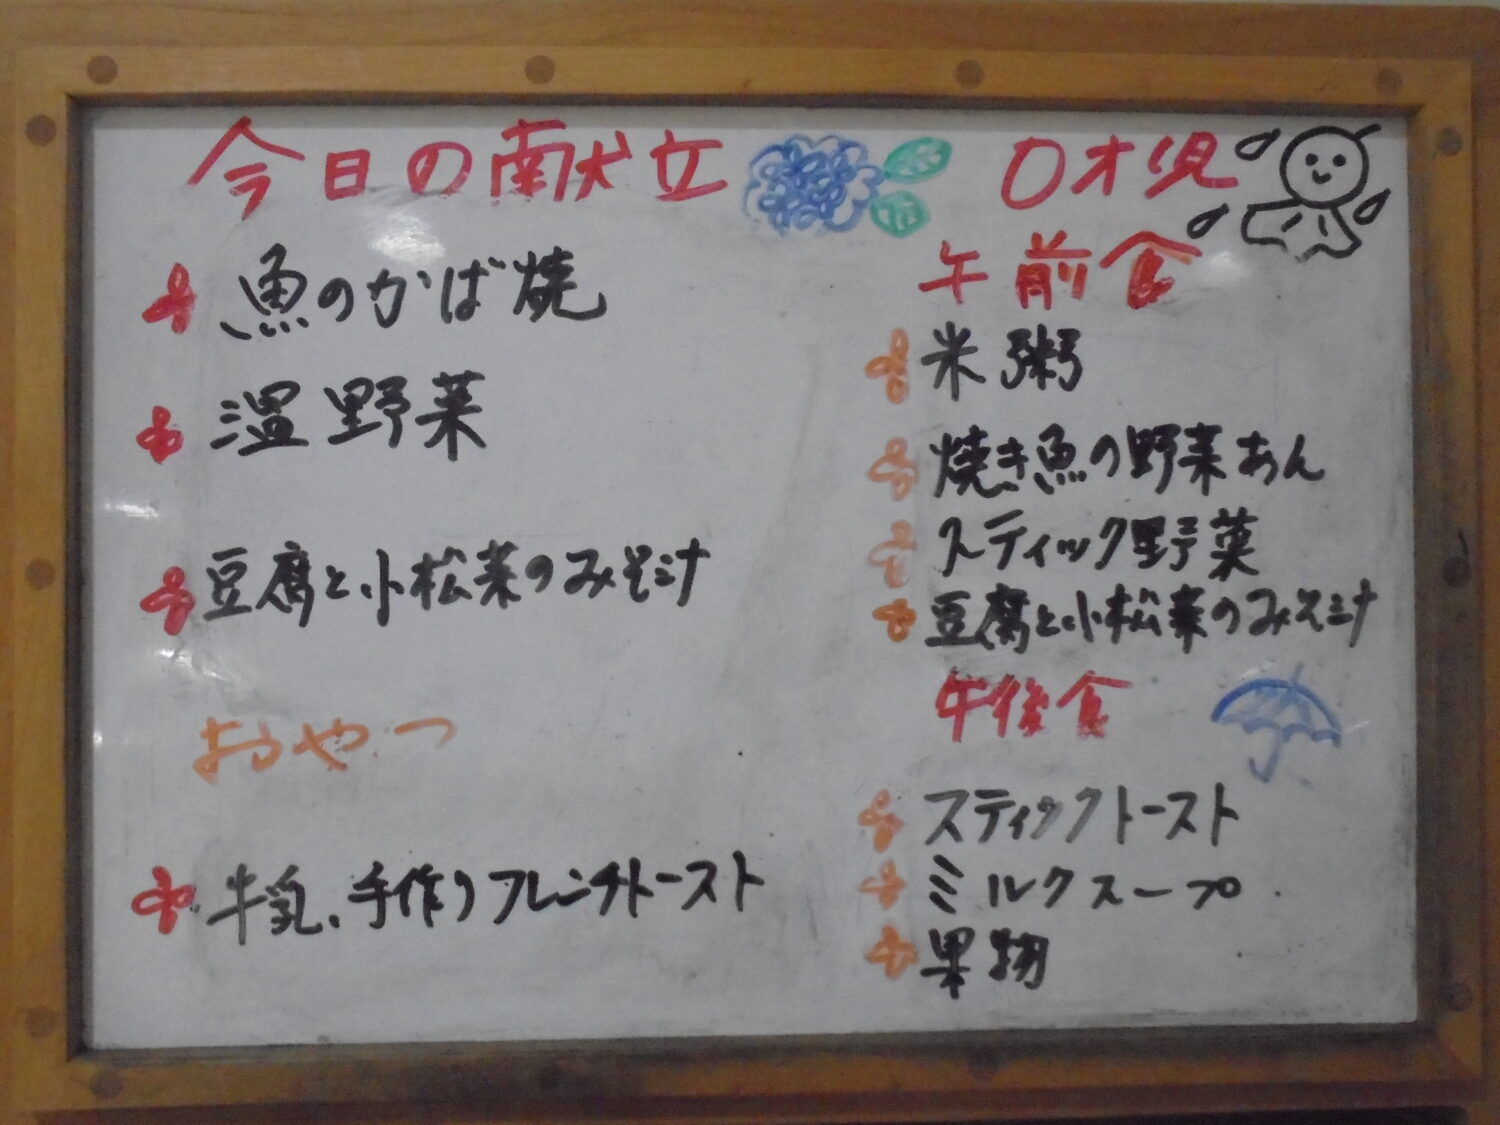 今日の献立
魚のかば焼
温野菜
豆腐と小松菜のみそ汁
おやつ
牛乳、手作りフレンチトースト
0才児
午前食
米粥
焼き魚の野菜あん
スティック野菜
豆腐と小松菜のみそ汁
午後食
スティックトースト
ミルクスープ
果物